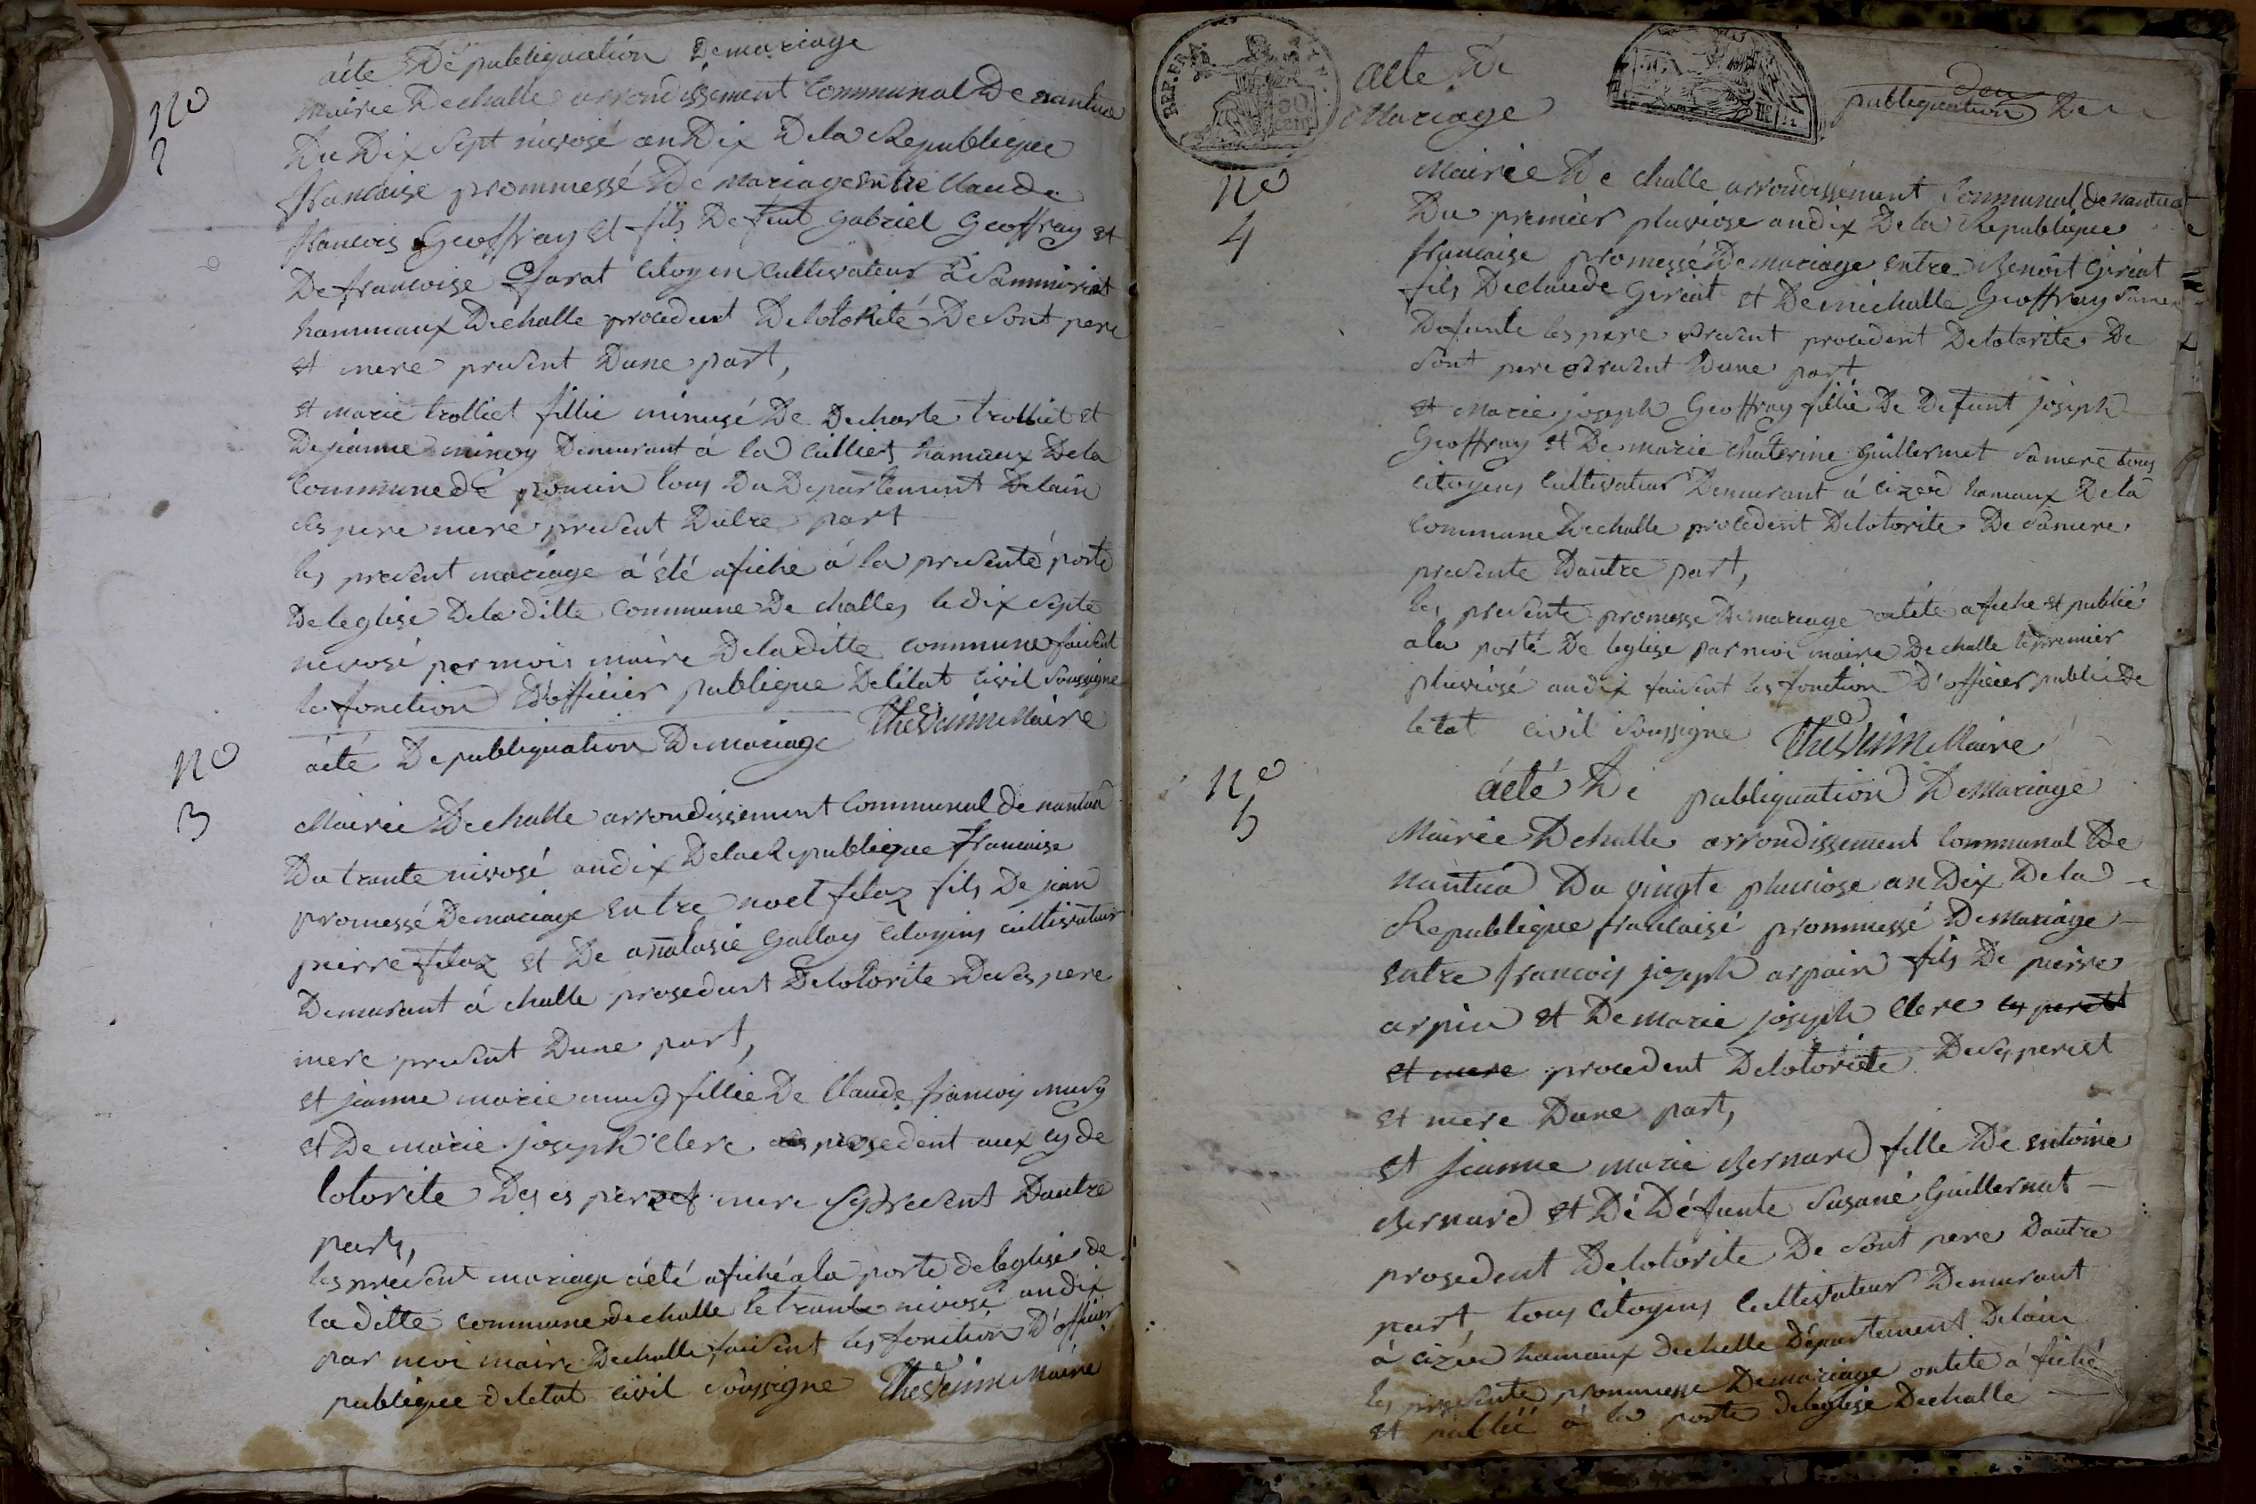 acte De publiquation De mariage
No
2
Mairie De challe arrondissement Communal De nantua
Du Dix Sept nivosé an Dix De la Republique
francaise prommessé De Mariage entre Claude
francois Geoffray et fils De feut Gabriel Geoffray et
De francoise citoyen cultivateur
hammaux De challe procedent De lotorité De sont pere
et mere present Dune part,
et marie trolliet fillie De De charle trolliet et
De jeanne Demurant á la hamaux De la
Commune de tous Du Departement De lain
ses pere mere present Dutre part
les present mariage á été afiché á la presente porte
De leglise De la ditte Commune De challes le dix septe
nivosé par moi maire De la ditte commune faisent
les fonction D'officier publique De létat civil soussigne
Thevenin Maire
No
3
acté De publiquation De mariage
Mairie De challe arrondissement Communal de nantua
Du trante nivosé an dix De la Republique francaise
promessé De mariage entre noel filoz fils De jean
pierre filoz et De anatasie Gallay Citoyins cultivateur
Demurant á challe prosedent De lotorite De ses pere
mere present Dune part,
et jeanne marie musy fillie De Claude francoiy musy
et De marie joseph Clere prosedent aux de
lotorite De ses per et mere present Dautre
part,
les present mariage á eté afiché a la porte de leglise de
la ditte commune de challe le trante nivosé an dix
par moi maire De challe faisent les fonction D'officier
publique de letat civil soussigne Thevenin Maire
REP. FRA.
50
cent
acte de
Mariage
publiquation De
No
4
Mairie De challe arrondissement Communal de nantua
Du premier pluviose an dix De la Republique
francaise promessé De mariage entre Benoit Giriat
fils De claude Giriat et De michelle Geoffray sa mere
Defunte les pere present procedent De lotorite De
sont pere present Dune part
et Marie joseph Geoffray fillié De Defunt joseph
Geoffray et De marie chaterine Guillermet sa mere tous
citoyens cultivateur Demurant á cizod hamaux De la
Commune De challe procedent De lotorite De sa mere
presente Dautre part,
les presente promesse De mariage ontété afiche et publié
a la porté De leglise par moi maire De challe le premier
pluviosé an dix faisent les fonction D'officier public De
letat civil soussigne Thevenin Maire
No
5
acté De publiquation De Mariage
Mairie De challe arrondissement Communal De
nantua Du vingte pluviose an Dix De la
Republique francaisé prommessé De Mariage
entre francois joseph arpain fils De pierre
arpin et De marie joseph Clere les per et
et mere procedent De lotoriéte De ses per et
et mere Dune part,
et jeanne marie Bernard fille De entoine
Bernard et Dé Défunte Susané Guillermet
prosedent De lotorite De sont pere Dautre
part, tous Citoyens Cultivateur Demurant
á cizod hamaux de chelle Département De lain
les presente prommesse De mariage ontete á fiché
et publié á la porte de leglise De challe